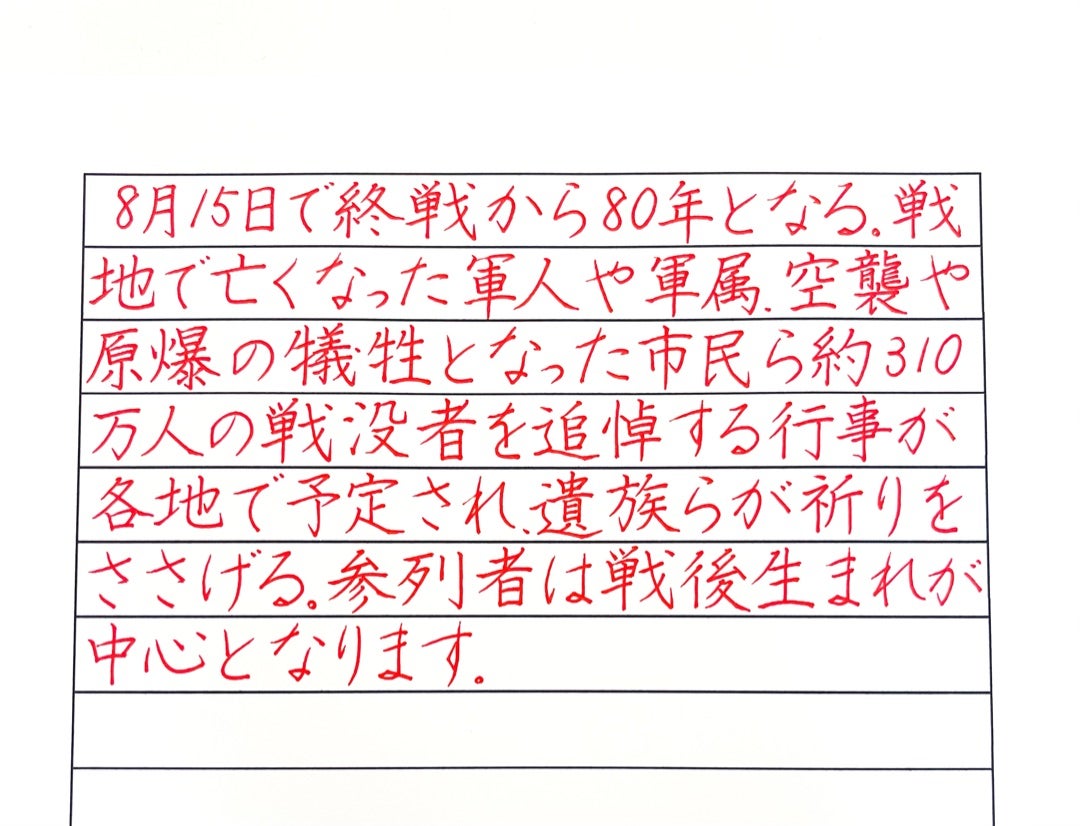 8月15日で終戦から80年となる。戦
地で亡くなった軍人や軍属、空襲や
原爆の犠牲となった市民ら約310
万人の戦没者を追悼する行事が
各地で予定され、遺族らが祈りを
ささげる。参列者は戦後生まれが
中心となります。